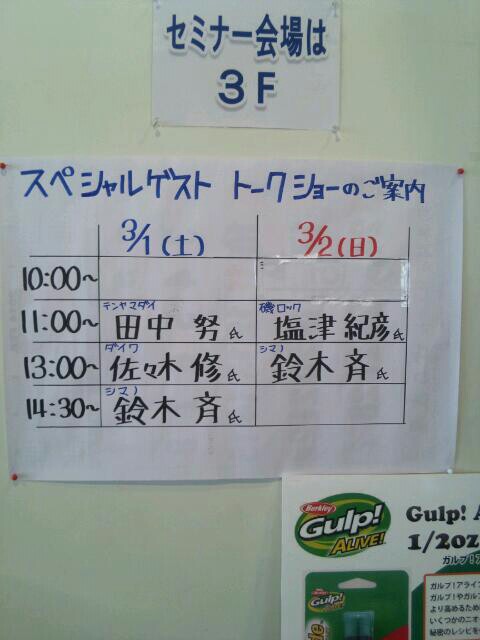 セミナー会場は
3F
スペシャルゲスト トークショーのご案内
3/1(土) 3/2(日)
10:00~
テンヤマダイ 磯ロック
11:00~ 田中 努氏 塩津 紀彦氏
ダイワ シマノ
13:00~ 佐々木 修氏 鈴木 斉氏
シマノ
14:30~ 鈴木 斉氏
Berkley
Gulp!
ALIVE!
Gulp! A
1/2oz
ガルプ!ア
ガルプ!アライブ
ガルプ!やガル
より高めるため
いくつかのニオ
秘密のレシピを
Gulp!